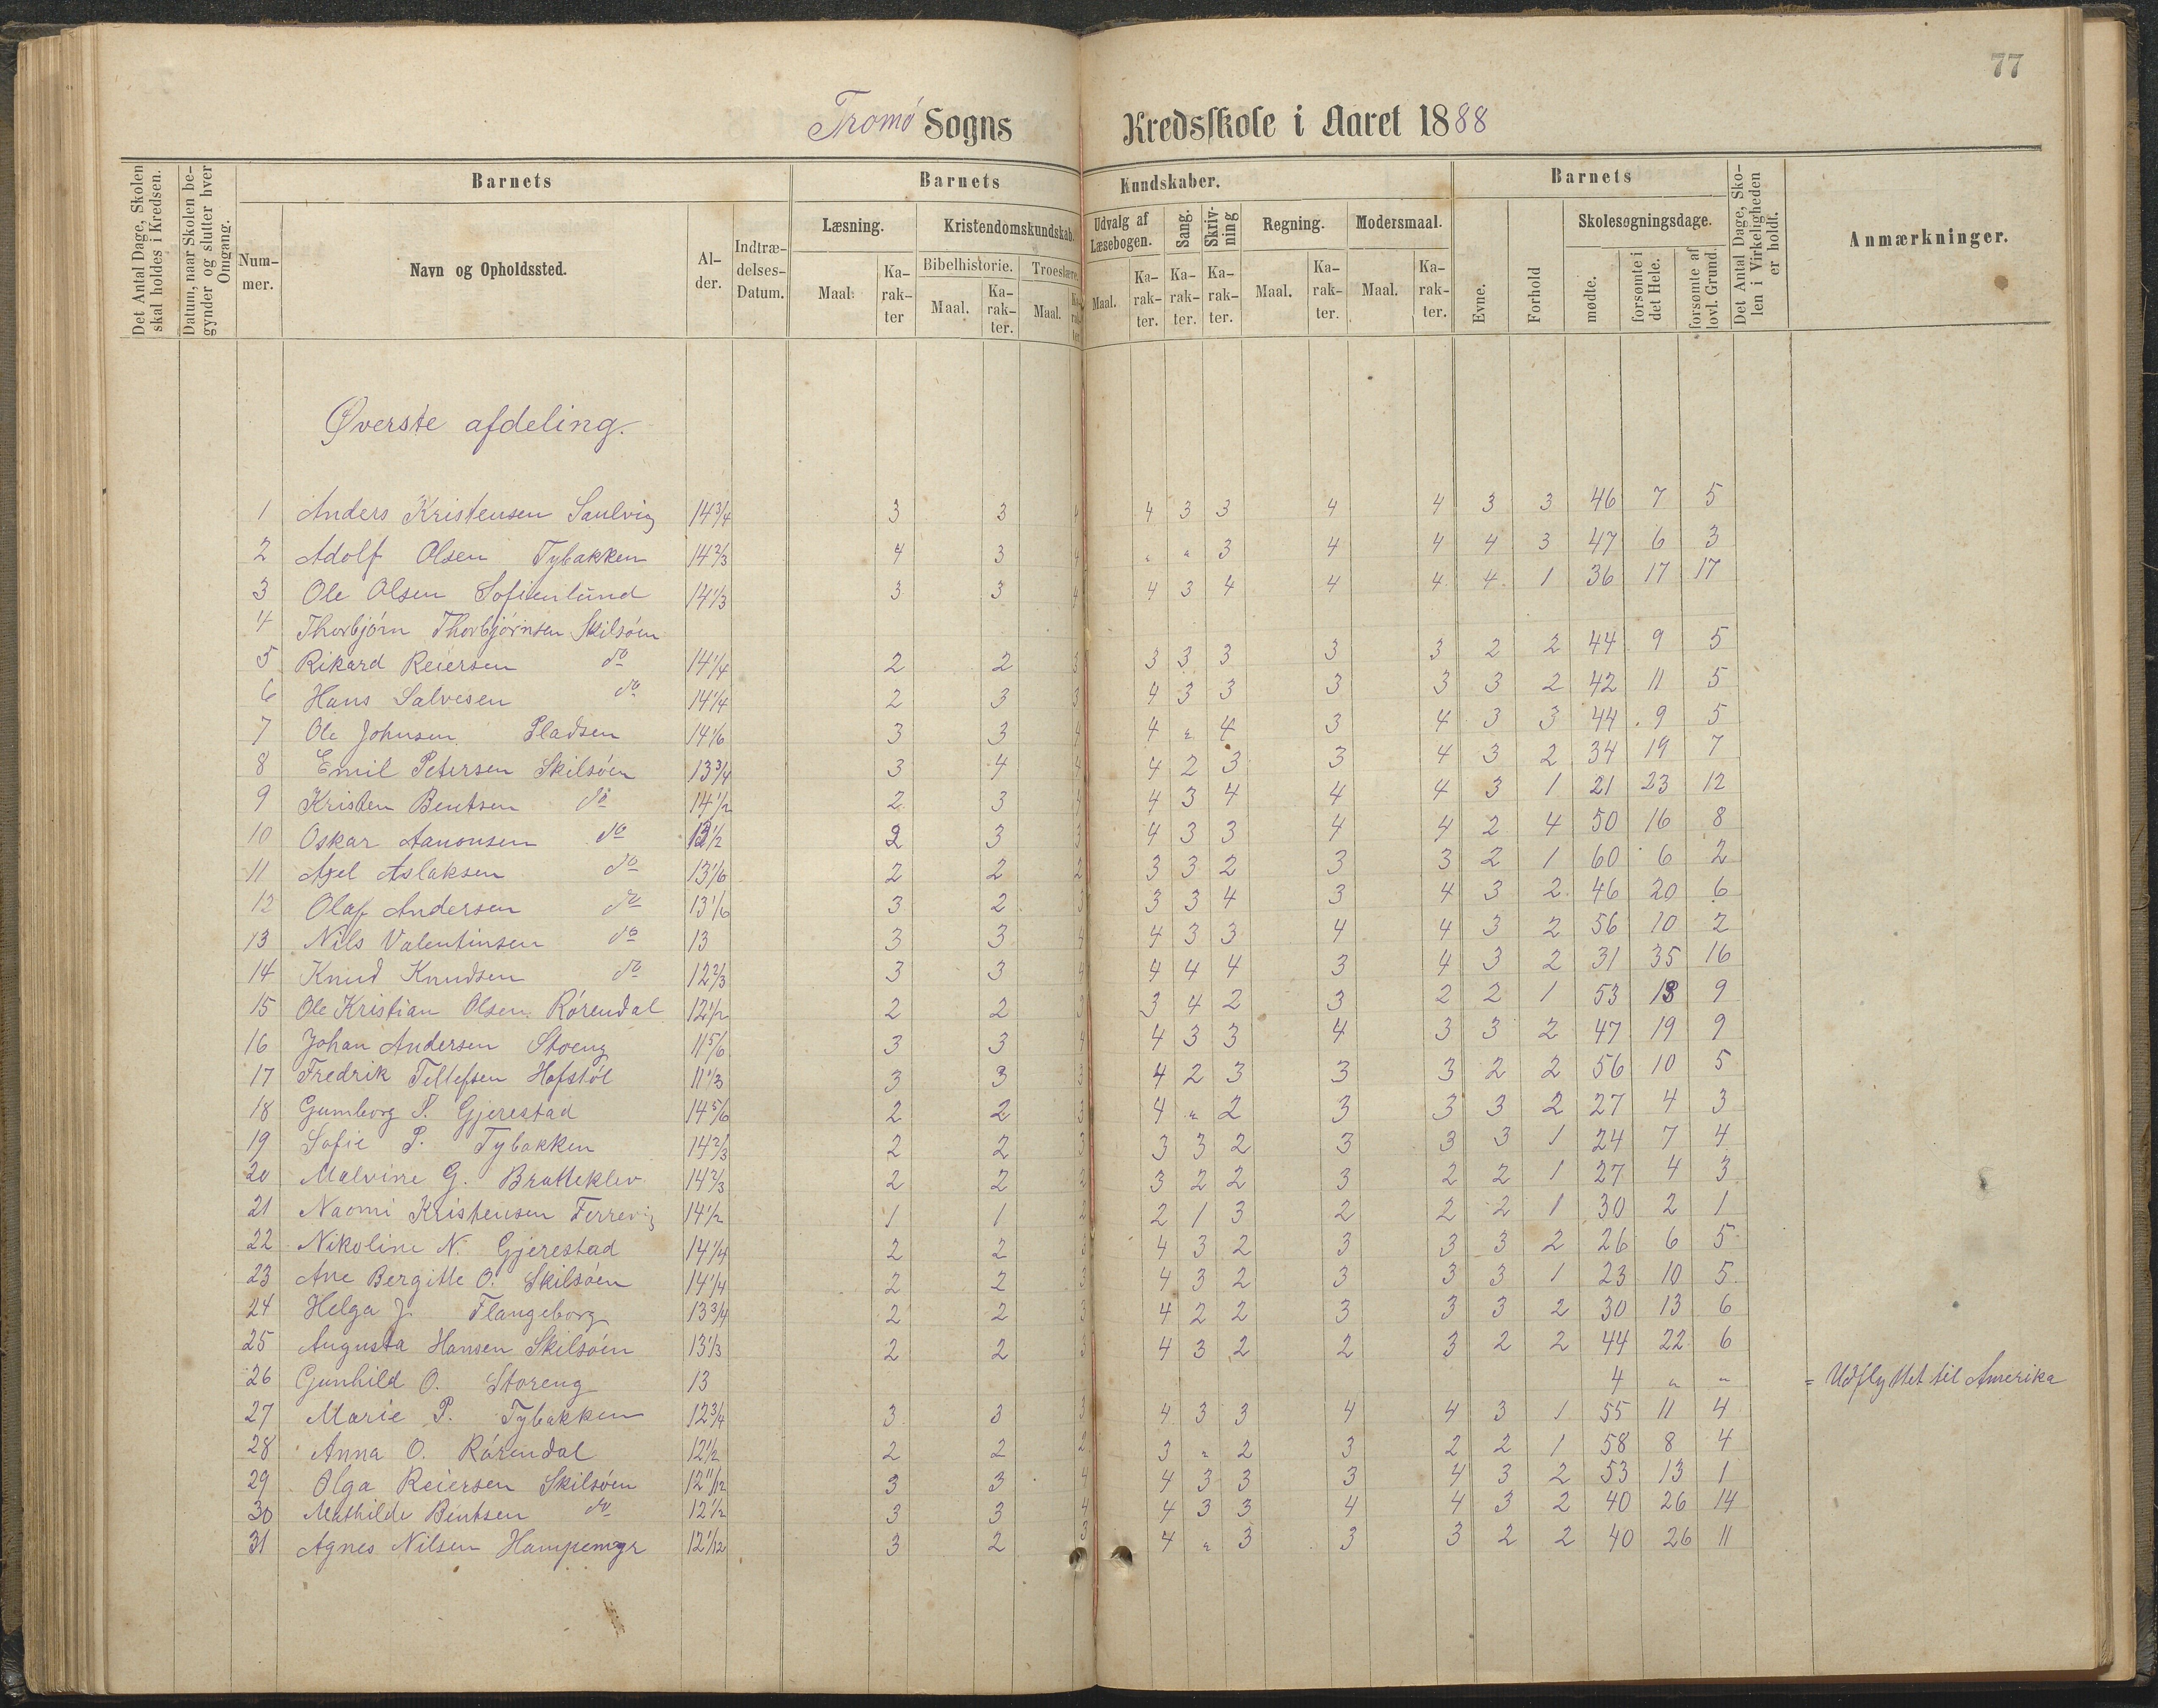 77
Tromø Sogns Kredsskole i Aaret 1888
Det Antal Dage, Skolen skal holdes i Kredsen.
Datum, naar Skolen begynder og slutter hver Omgang.
Barnets
Nummer.
Navn og Opholdssted.
Alder.
Indtrædelses-Datum.
Barnets Kundskaber.
Læsning.
Maal.
Karakter
Kristendomskundskab.
Bibelhistorie.
Maal.
Karakter.
Troeslære.
Maal.
Karakter
Udvalg af Læsebogen.
Maal.
Karakter.
Sang.
Karakter.
Skrivning
Karakter.
Regning.
Maal.
Karakter.
Modersmaal.
Maal.
Karakter.
Barnets
Evne.
Forhold
Skolesøgningsdage.
mødte.
forsømte i det Hele.
forsømte af lovl. Grund.
Det Antal Dage, Skolen i Virkeligheden er holdt.
Anmærkninger.
Øverste afdeling.
1 Anders Kristensen Saulvig 14 3/4 3 3 4 4 3 3 4 4 3 3 46 7 5
2 Adolf Olsen Tybakken 14 2/3 4 3 4 " " 3 4 4 4 3 47 6 3
3 Ole Olsen Sofienlund 14 1/3 3 3 4 4 3 4 4 4 4 1 36 17 17
4 Thorbjörn Thorbjörnsen Skilsöen
5 Rikard Reiersen do 14 1/4 2 2 3 3 3 3 3 3 2 2 44 9 5
6 Hans Salvesen do 14 1/4 2 3 3 4 3 3 3 3 3 2 42 11 5
7 Ole Johnsen Pladsen 14 1/6 3 3 4 4 " 4 3 4 3 3 44 9 5
8 Emil Petersen Skilsöen 13 3/4 3 4 4 4 2 3 3 4 3 2 34 19 7
9 Kristen Bentsen do 14 1/2 2 3 4 4 3 4 4 4 3 1 21 23 12
10 Oskar Aanonsen do 13 1/2 2 3 3 4 3 3 4 4 2 4 50 16 8
11 Axel Aslaksen do 13 1/6 2 2 2 3 3 2 3 3 2 1 60 6 2
12 Olaf Andersen do 13 1/6 3 2 3 3 3 4 3 4 3 2 46 20 6
13 Nils Valentinsen do 13 3 3 4 4 3 3 4 4 3 2 56 10 2
14 Knud Knudsen do 12 2/3 3 3 4 4 4 4 3 4 3 2 31 35 16
15 Ole Kristian Olsen Rörendal 12 1/2 2 2 3 3 4 2 3 2 2 1 53 13 9
16 Johan Andersen Stoeng 11 5/6 3 3 4 4 3 3 4 3 3 2 47 19 9
17 Fredrik Tellefsen Hofstöl 11 1/3 3 3 3 4 2 3 3 3 2 2 56 10 5
18 Gumborg P. Gjerestad 14 5/6 2 2 3 4 " 2 3 3 3 2 27 4 3
19 Sofie P. Tybakken 14 2/3 2 2 3 3 3 2 3 3 3 1 24 7 4
20 Malvine G. Bratteklev 14 2/3 2 2 2 3 2 2 3 2 2 1 27 4 3
21 Naomi Kristensen Ferrevig 14 1/2 1 1 2 2 1 3 2 2 2 1 30 2 1
22 Nikoline N. Gjerestad 14 1/4 2 2 3 4 3 2 3 3 3 2 26 6 5
23 Ane Bergitte O. Skilsöen 14 1/4 2 2 3 4 3 2 3 3 3 1 23 10 5
24 Helga J. Flangeborg 13 3/4 2 2 3 4 2 2 3 3 3 2 30 13 6
25 Augusta Hansen Skilsöen 13 1/3 2 2 3 4 3 2 2 3 2 2 44 22 6
26 Gunhild O. Storeng 13 4 " " = Udflyttet til Amerika
27 Marie P. Tybakken 12 3/4 3 3 3 4 3 3 4 4 3 1 55 11 4
28 Anna O. Rörendal 12 1/2 2 2 2 3 " 2 3 2 2 1 58 8 4
29 Olga Reiersen Skilsöen 12 11/12 3 3 4 4 3 3 3 4 3 2 53 13 1
30 Mathilde Bentsen do 12 1/2 3 3 4 4 3 3 4 4 3 2 40 26 14
31 Agnes Nilsen Hampemyr 12 1/12 3 2 3 4 " 3 3 3 2 2 40 26 11